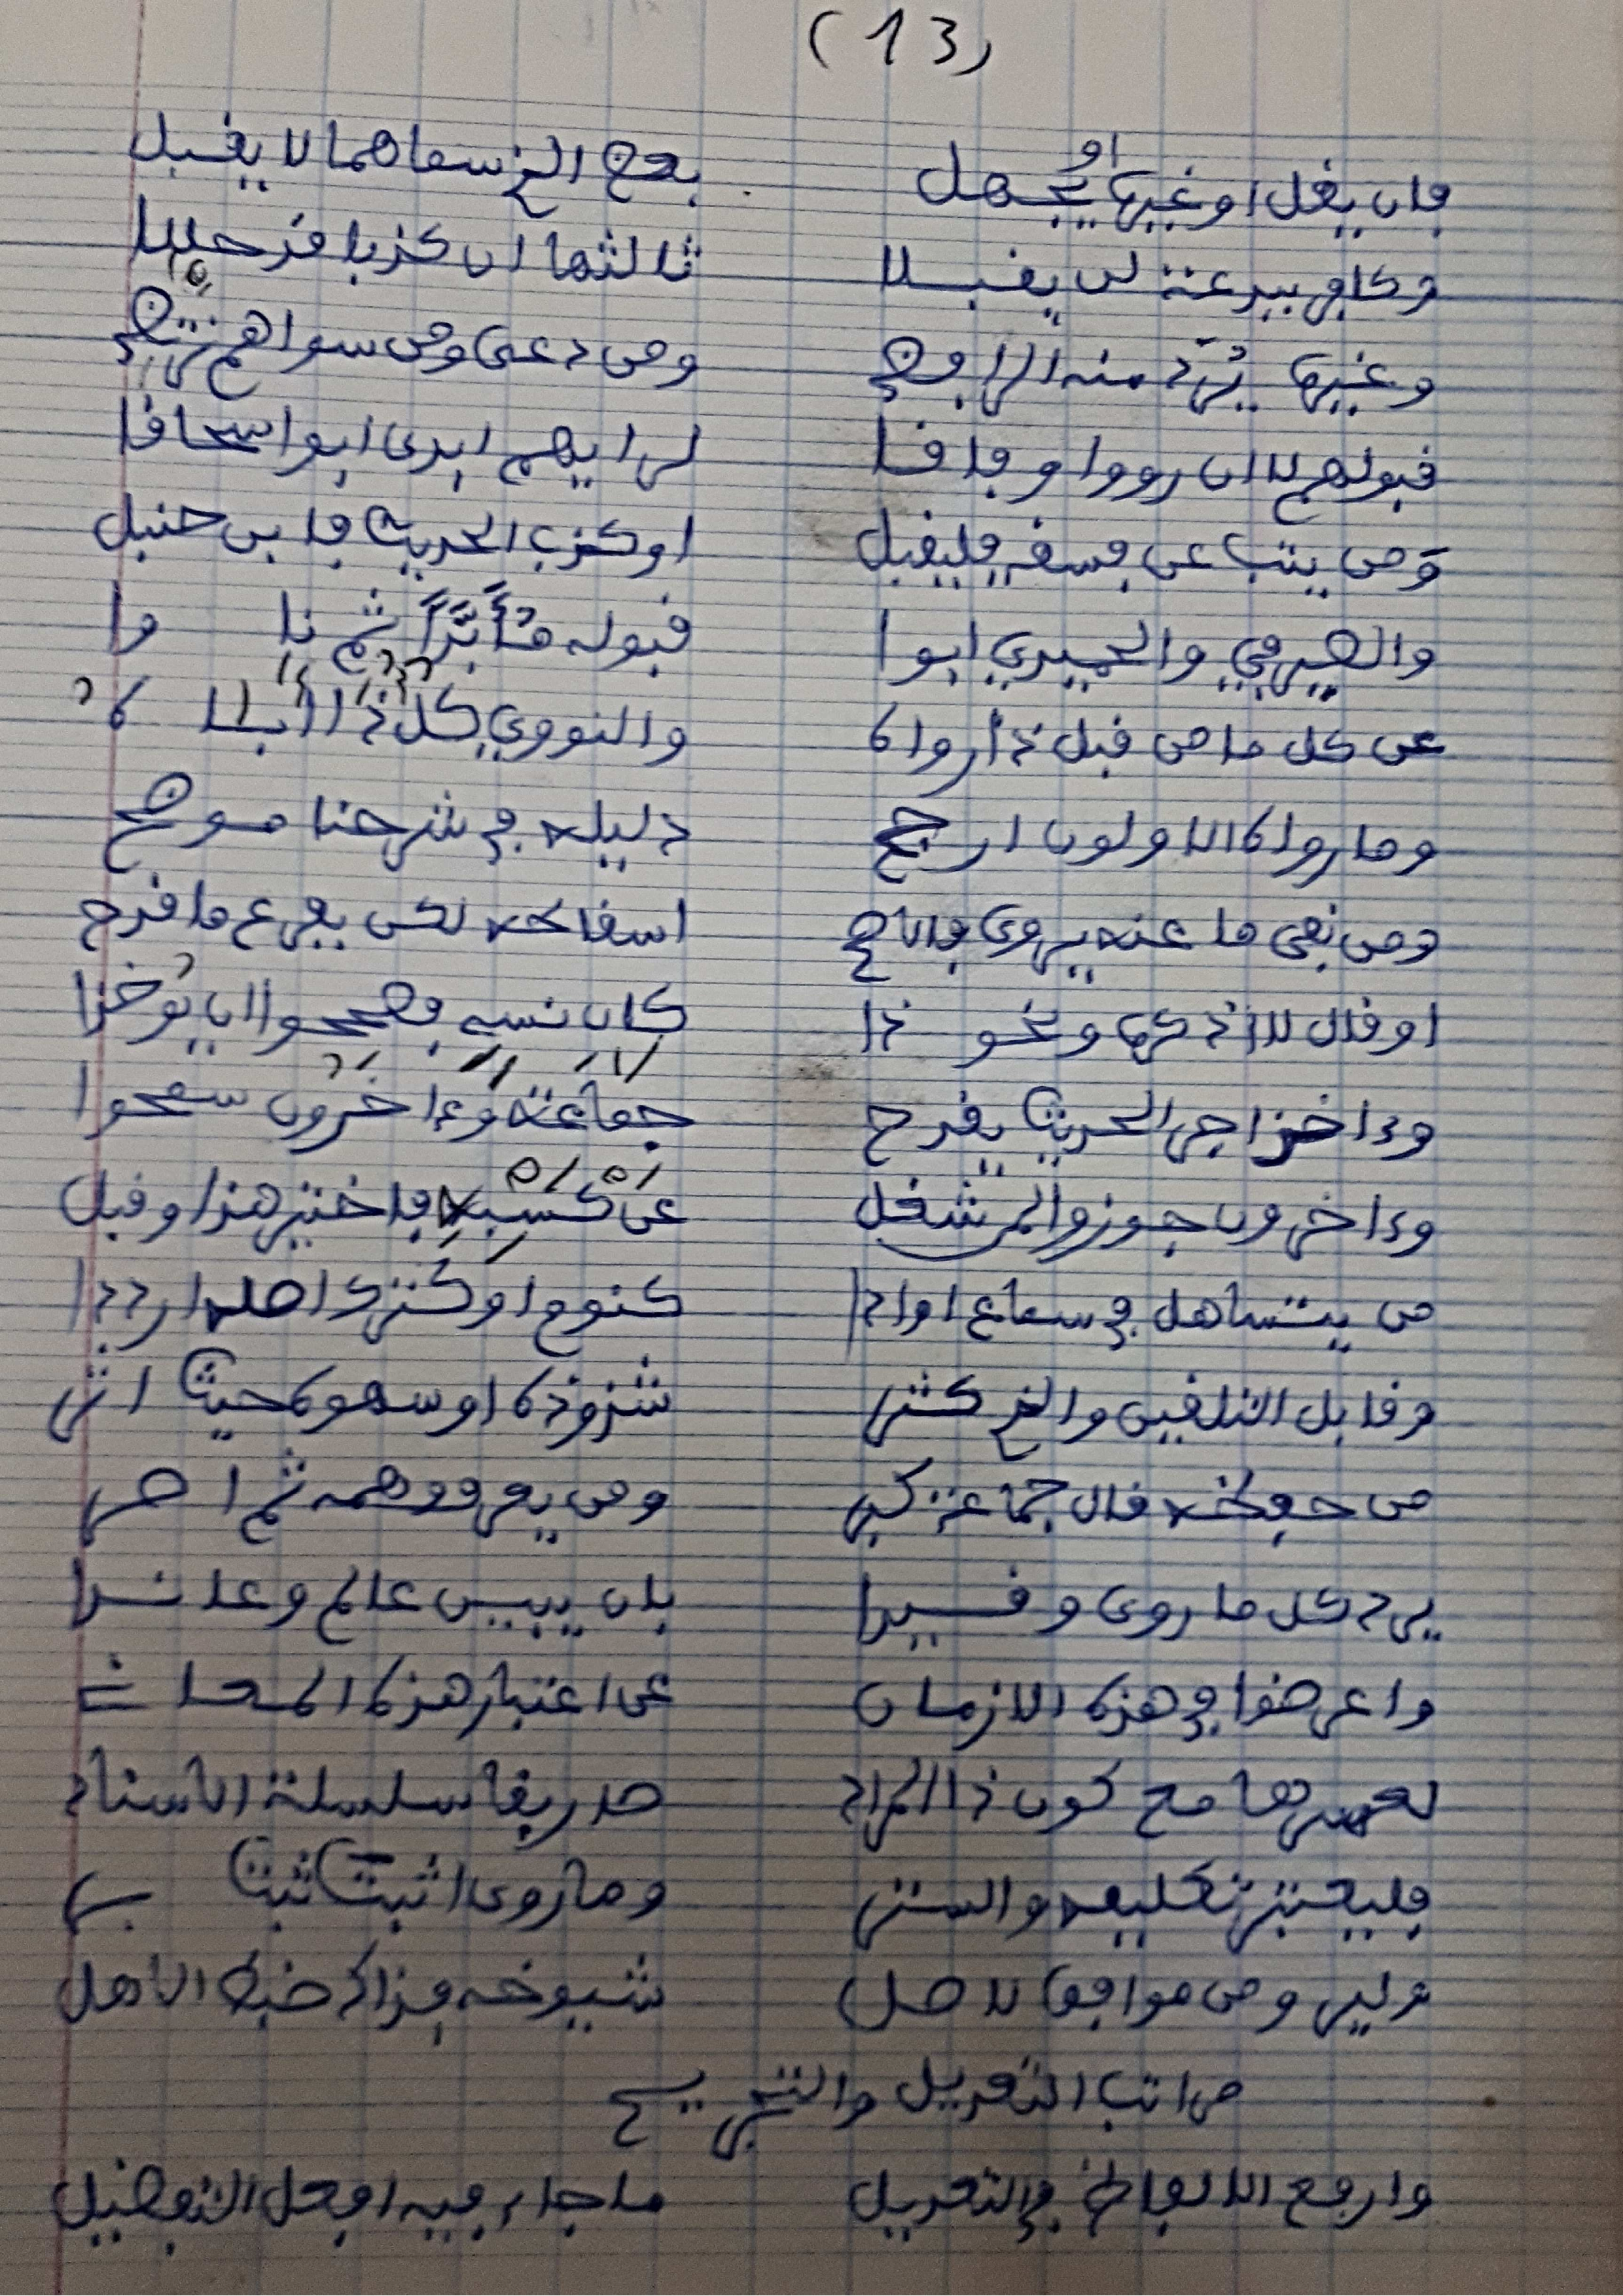 (13)
فان يقل او غيرها او يجهل بعض الذ سماهما لا يقبل
وكافر ببدعة لن يقبلا ثالثها ان كذبا قد حللا
وغيرها يرد منه الرافضي ومن دعى ومن سواهم نرتضي
قبولهم لا ان رووا وفاقا لرايهم ابدى ابو اسحاقا
ومن يتب عن فسقه فليقبل او كذب الحديث فابن حنبل
والصيرفي والحميدي ابوا قبوله مؤبدا ثم نأوا
عن كل ما من قبل ذا رواه والنووي كل ذا اباه
وما رواه الاولون ارجح دليله في شرحنا موضح
ومن نفى ما عنه يروى فالاصح اسقاطه لكن بفرع ما قدح
او قال لا اذكره ونحو ذا كان نسي فصححوا ان يوخذا
وءاخذ اجر الحديث يقدح جماعة وءاخرون سمحوا
وءاخرون جوزوا لمن شغل عن كسبه فاختير هذا وقبل
من يتساهل في سماع او ادا كنوم او كترك اصله ارددا
وقابل التلقين والذ كثر شذوذه او سهوه حيث اثر
من حفظه قال جماعة كبر ومن يعرف وهمه ثم اصر
يرد كل ما روى وقيدا بان يبين عالم وعاندا
واعرضوا في هذه الازمان عن اعتبار هذه المعان
لعسرها مع كون ذا المراد صار بقا سلسلة الاسناد
فليعتبر تكليفه والستر وما روى اثبت ثبت بر
وليرو من موافق لاصل شيوخه فذاك ضبط الاهل
مراتب التعديل والتجريح
وارفع الالفاظ في التعديل ما جاء فيه افعل التفضيل